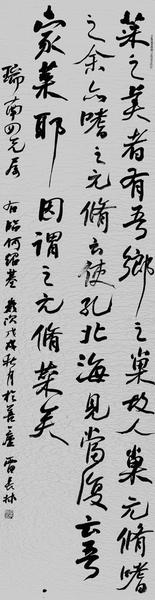 菜之美者有吾鄉之巢故人巢元脩嗜
之余亦嗜之元脩云使孔北海見當復云吾
家菜耶因謂之元脩菜矣
瑞南四兄属 右临何紹基 歲次戊戌秋月於善廬 雷長林